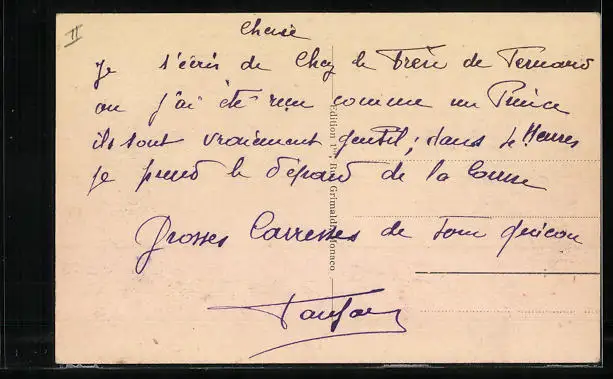 II
Cherie
Je t'écris de Chez le Frère de Fernand
ou j'ai été reçu comme un Prince
ils sont vraiement gentil; dans 4 Heures
je prend le départ de la Course
Grosses Carresses de ton
Edition 1bis, Rue Grimaldi, Monaco